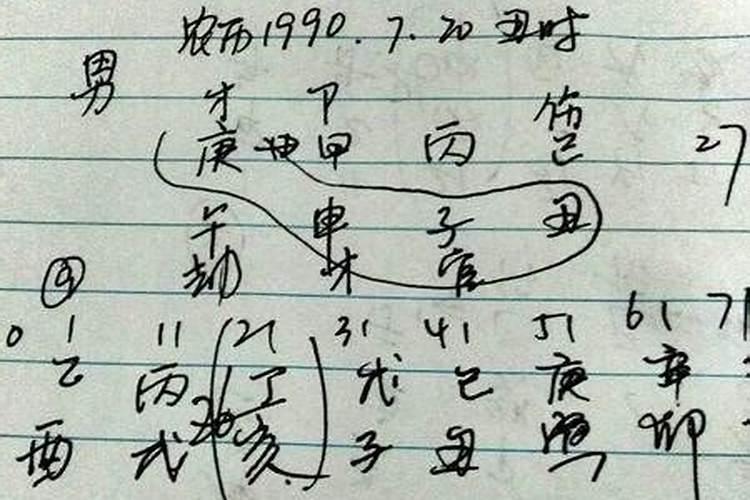 农历1990.7.20 丑时
男 才 卩 伤
庚 甲 丙 己 27
午 申 子 丑
劫 才 官
0 1 11 21 31 41 51 61 71
乙 丙 丁 戊 己 庚 辛
酉 戌 亥 子 丑 卯